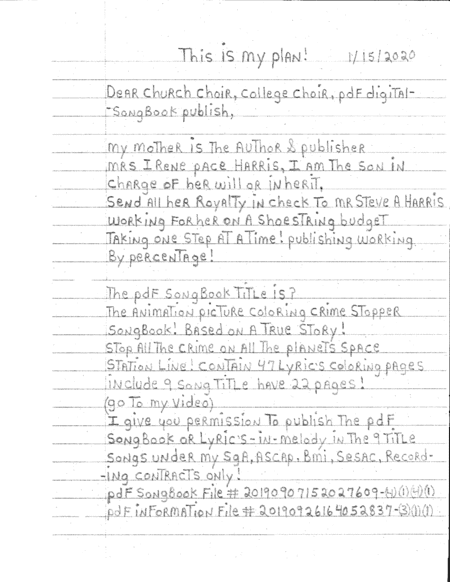 This is my plan! 1/15/2020
Dear Church Choir, College Choir, pdf digital-
-Songbook publish,
my mother is the Author & publisher
mrs Irene pace Harris, I am the son in
charge of her will or inherit,
Send all her Royalty in check to mr Steve A Harris
working for her on a shoestring budget
Taking one step at a time! publishing working
By percentage!
The pdf Songbook Title is?
The Animation picture coloring crime stopper
Songbook! Based on a True Story!
Stop All The Crime on All The planets Space
Station Line! Contain 47 Lyric's coloring pages
include 9 song Title have 22 pages!
(go To my video)
I give you permission To publish The pdf
Songbook or Lyric's-in-melody in The 9 Title
Songs under my SgA, ASCAp, Bmi, Sesac, Record-
-ing contracts only!
pdf Songbook File # 20190907152027609-(4)(1)(4)(1)
pdf information File # 20190926164052837-(3)(1)(1)